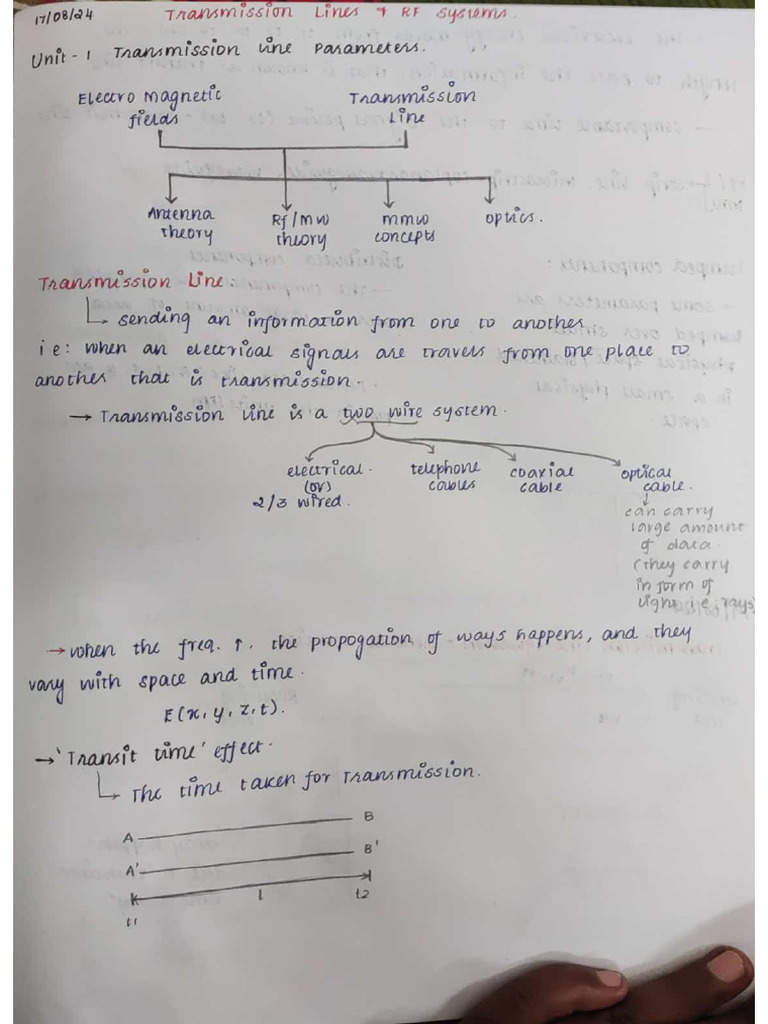 17/08/24
Transmission Lines & RF Systems.
Unit - 1 Transmission line Parameters.
Electro Magnetic
fields
Transmission
Line
Antenna
theory
Rf/MW
theory
mmw
concepts
optics.
Transmission Line:
sending an information from one to another
i e: when an electrical signals are travels from one place to
another that is transmission.
→ Transmission line is a two wire system.
electrical.
(or)
2/3 wired.
telephone
cables
coaxial
cable
optical
cable.
can carry
large amount
of data.
(they carry
in form of
light i.e rays)
→ when the freq. ↑. the propogation of ways happens, and they
vary with space and time.
E(x, y, z, t).
→ 'Transit time' effect.
The time taken for Transmission.
A B
A' B'
l
t1 t2